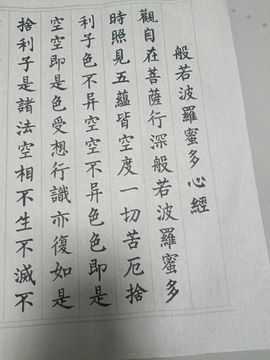 般若波羅蜜多心經
觀自在菩薩行深般若波羅蜜多
時照見五蘊皆空度一切苦厄捨
利子色不异空空不异色色即是
空空即是色受想行識亦復如是
捨利子是諸法空相不生不滅不